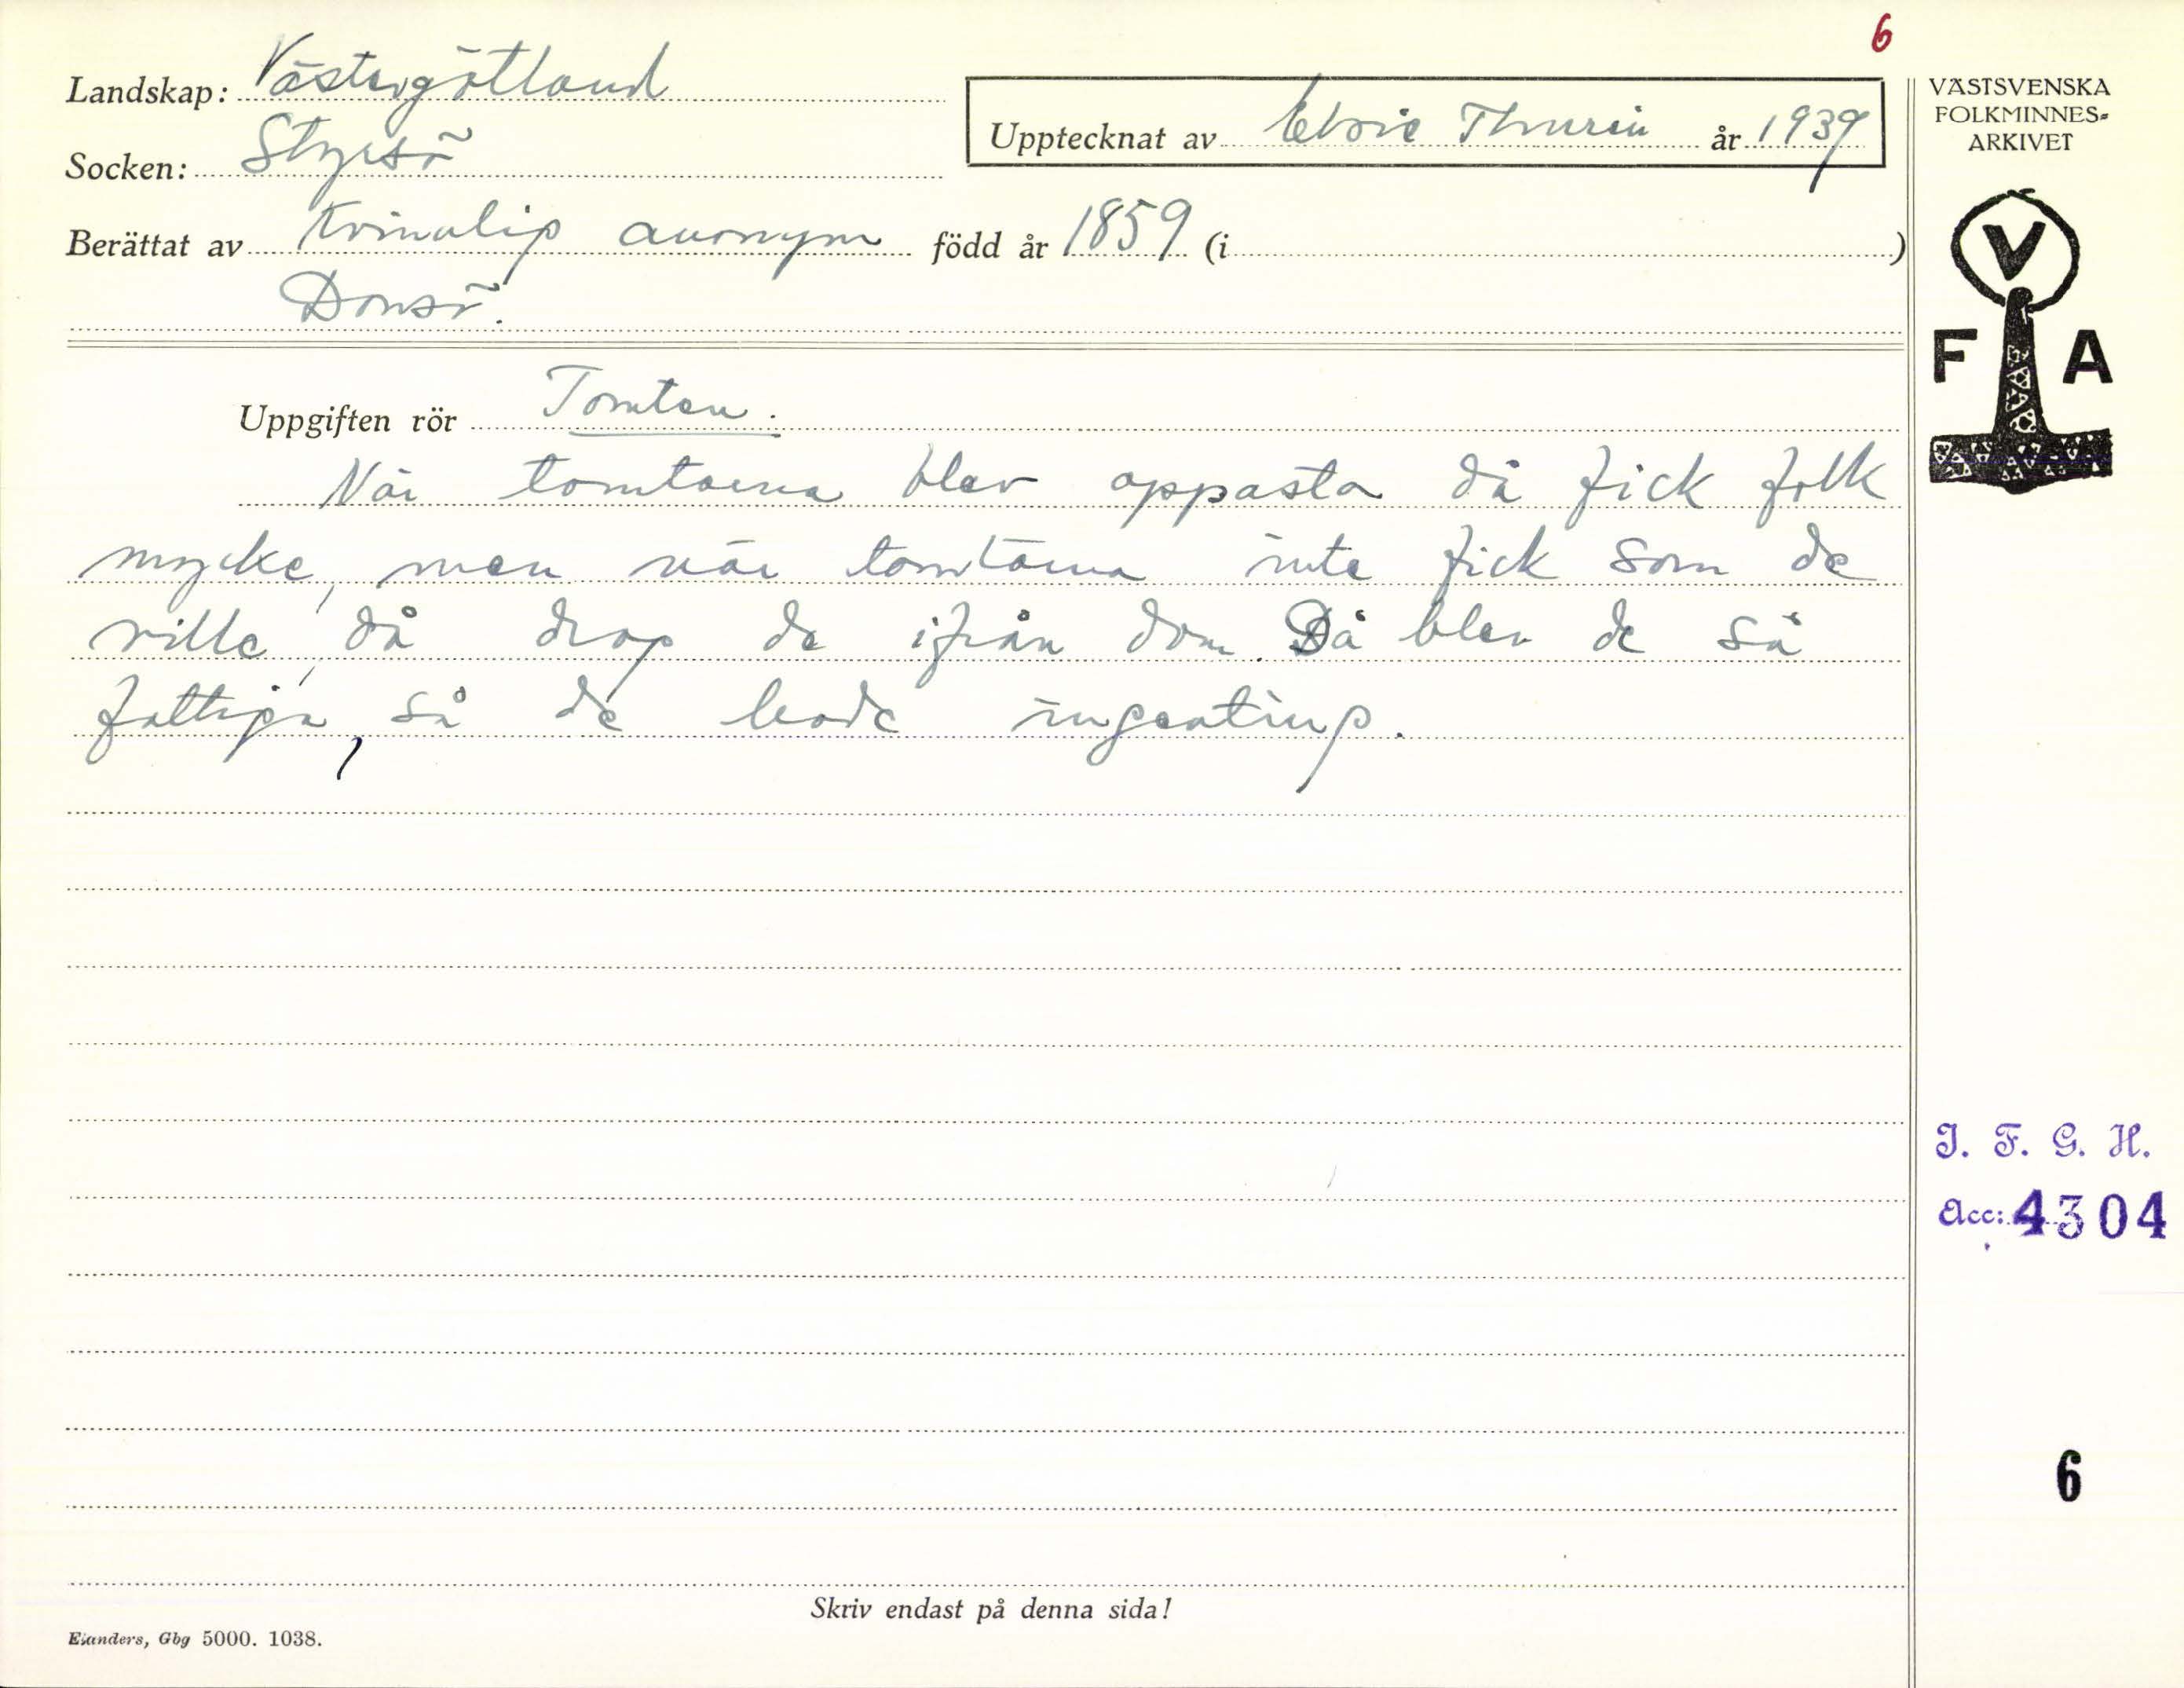 6
Landskap: Västergötland
Socken: Styrsö
Upptecknat av Elsie Thurin år 1939
Berättat av kvinnlig anonym född år 1859 (i )
Donsö.
Uppgiften rör Tomten.
När tomtarna blev oppasta då fick folk
mycke, men när tomtarna inte fick som de
ville, då drog de ifrån dom. Då blev de så
fattiga, så de hade ingenting.
Skriv endast på denna sida!
Elanders, Gbg 5000. 1038.
VÄSTSVENSKA
FOLKMINNES-
ARKIVET
V
F A
I. F. G. H.
Acc: 4304
6